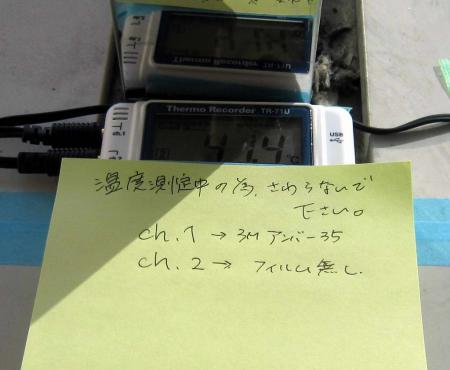 Thermo Recorder TR-71U
USB
41.4 °C
温度測定中の為、さわらないで
下さい。
ch.1 → 3M アンバー35
ch.2 → フィルム無し.